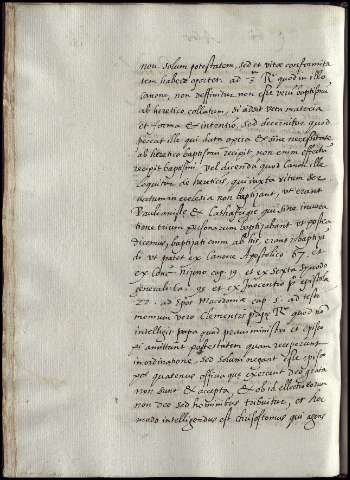 non solum potestatem, sed et vitæ conformita
tem habere oportet. ad 3 R quod in illo
canone, non deffinitur non esse verū baptismū
ab heretico collatum, si adsit vera materia
et forma & intentio, sed decernitur quod
peccat ille qui data opera & sine necessitate
ab heretico baptismū recipit non enim effectū
recipit baptismi, vel dicendū quod Canon ille
loquitur de hereticis, qui iuxta ritum
ecclesiæ non baptizant, ut erant
Paulianistæ & Cathafrigæ qui sine invoca
tione trium personarum baptizabant ut postea
dicemus, baptizati enim ab his, erant rebaptizā
di ut patet ex Canone Apostolico 67. et
ex Conc. niceno cap. 19 et ex sexta sinodo
generali ca. 95 et ex Inocentio pº epistola
22. ad epos Macedoniæ cap. 5. ad testi
monium vero Clementis papæ R quod non
intelligit papa quod pravi ministri et episco
pi amittunt potestatem quam receperunt
in ordinatione. sed solum negant esse episco
pos quatenus officia quæ exercent deo grata
non sunt & accepta, & ob id electio eorum
non deo sed hominibus tribuitur, et hoc
modo intelligendus est chrisostomus qui agens